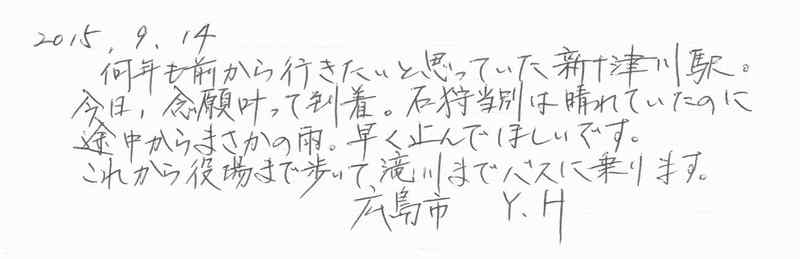 2015. 9. 14
何年も前から行きたいと思っていた新十津川駅。
今日、念願叶って到着。石狩当別は晴れていたのに
途中からまさかの雨。早く止んでほしいです。
これから役場まで歩いて滝川までバスに乗ります。
広島市 Y.H